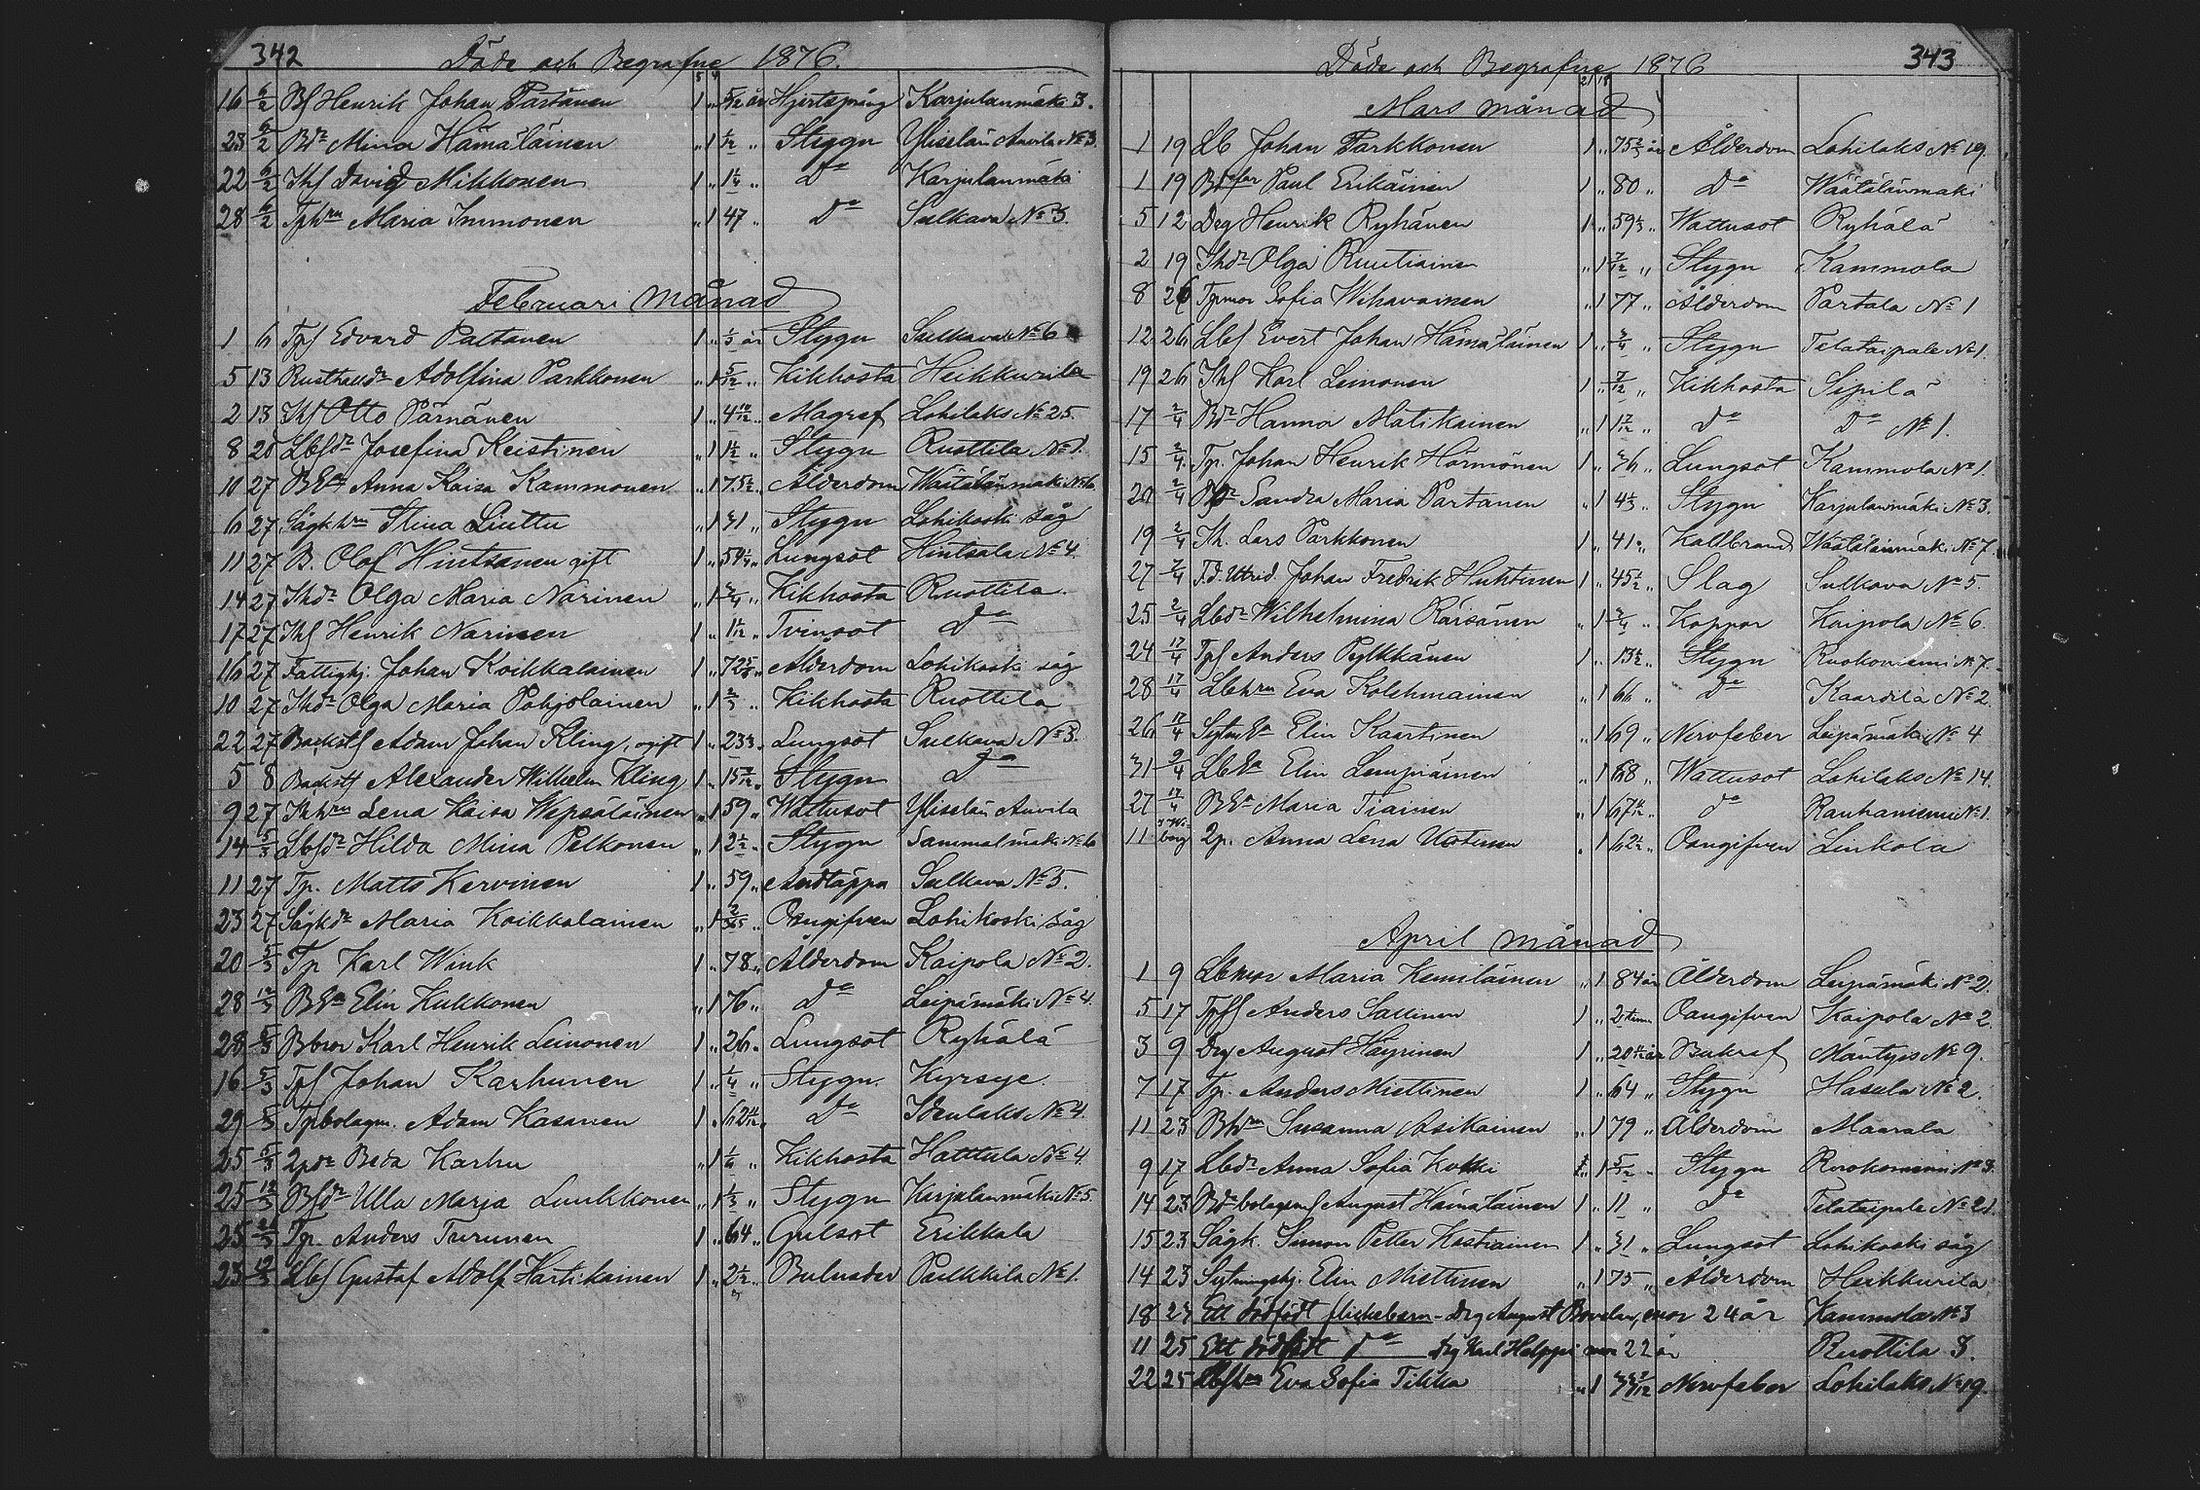 342
Döde och Begrafne 1876.
16 6/2 Bs Henrik Johan Partanen 1 „ 5/12 år Hjertspräng Karjulanmäki 3.
23 6/2 Bdr Mina Hämäläinen „ 1 1/12 „ Stygn Yliselän Auvila № 3.
22 6/2 Ths David Mikkonen 1 „ 1 1/4 „ Do Karjulanmäki
28 6/2 Tphru Maria Immonen „ 1 47 „ Do Sulkava № 3.
Februari månad
1 6 Tps Edvard Paltanen 1 „ 1/3 år Stygn Sulkava № 6
5 13 Rusthauds Adolfina Parkkonen „ 1 5/12 „ Kikhosta Heikkurila
2 13 Ths Otto Pärnänen 1 „ 4 10/12 „ Magref Lohilaks № 25.
8 20 Lbsdr Josefina Keistinen „ 1 1 1/2 „ Stygn Ruottila № 1.
10 27 BEa Anna Kaisa Kammonen „ 1 75 1/2 „ Ålderdom Wäätälänmäki № 6
6 27 Sågkhru Stina Liuttu „ 1 31 „ Stygn Lohikoski såg
11 27 B. Olof Hintsanen gift 1 „ 59 1/4 „ Lungsot Hintsala № 4.
14 27 Thdr Olga Maria Narinen „ 1 3/4 „ Kikhosta Ruottila.
17 27 Ths Henrik Narinen 1 „ 1 1/12 „ Tvinsot Do
16 27 Fattighj. Johan Koikkalainen 1 „ 72 5/6 „ Ålderdom Lohikoski såg
10 27 Thdr Olga Maria Pohjolainen „ 1 2/3 „ Kikhosta Ruottila
22 27 Backsts Adam Johan Kling, ogift 1 „ 23 2/3 „ Lungsot Sulkava № 3.
5 8 Backsts Alexander Wilhelm Kling 1 „ 15 7/12 „ Stygn Do
9 27 Thhru Lena Kaisa Wepsäläinen „ 1 59 „ Wattusot Yliselän Auvila
14 5/3 Lbsdr Hilda Mina Pelkonen „ 1 2 1/2 „ Stygn Sammalmäki № 6
11 27 Tp. Matts Kervinen 1 „ 59 „ Andtäppa Sulkava № 5.
23 27 Sågkdr Maria Koikkalainen „ 1 2/365 „ Oangifven Lohikoski såg
20 5/3 Tp Karl Wink 1 „ 78 „ Ålderdom Kaipola № 2.
28 12/3 BEa Elin Kukkonen „ 1 76 „ Do Leipämäki № 4.
28 5/3 Bbror Karl Henrik Leinonen 1 „ 26 „ Lungsot Ryhälä
16 5/3 Tps Johan Karhunen 1 „ 1/4 „ Stygn. Kyrsyä.
29 5/3 Tpbolagm. Adam Kasanen 1 „ 62 11/12 „ Do Idenlaks № 4.
25 5/3 2pdr Beda Karhu „ 1 1/6 „ Kikhosta Hattula № 4.
25 12/3 Bsdr Ulla Marja Luukkonen „ 1 1/3 „ Stygn Karjulanmäki № 5
25 Tp. Anders Turunen 1 „ 64 „ Gulsot Erikkala
23 12/3 Lbs Gustaf Adolf Hartikainen 1 „ 2 1/2 „ Bulnader Pulkkila № 1.
343
Döde och Begrafne 1876
Mars månad
1 19 Lb Johan Parkkonen 1 „ 75 2/3 år Ålderdom Lohilaks № 19.
1 19 Bfar Paul Erikäinen 1 „ 80 „ Do Wäätälänmäki
5 12 Drg Henrik Ryhänen 1 „ 59 1/3 „ Wattusot Ryhälä
2 19 Thdr Olga Ruutiainen „ 1 7/12 „ Stygn Kammola
8 26 Tpmor Sofia Wihavainen „ 1 77 „ Ålderdom Partala № 1
12 26 Lbs Evert Johan Hämäläinen 1 „ 3/4 „ Stygn Telataipale № 1.
19 26 Ths Karl Leinonen 1 „ 7/12 „ Kikhosta Sipilä
17 2/4 Bdr Hanna Matikainen „ 1 1/12 „ Do Do № 1.
15 2/4 Tp. Johan Henrik Härmönen 1 „ 36 „ Lungsot Kammola № 1.
20 2/4 Sandra Maria Partanen „ 1 4 1/3 „ Stygn Karjulanmäki № 3.
19 2/4 Th. Lars Parkkonen 1 „ 41 „ Kallbrand Wäätälänmäki № 7.
27 2/4 F.d. Utrid. Johan Fredrik Huhtinen 1 „ 45 1/2 „ Slag Sulkava № 5.
25 2/4 Lbdr Wilhelmina Räisänen „ 1 3/4 „ Koppor Kaipola № 6.
24 17/4 Tps Anders Pylkkänen 1 „ 13 1/2 „ Stygn Ruokoniemi № 7.
28 17/4 Lbhru Eva Kolehmainen „ 1 66 „ Do Kaartila № 2.
26 17/4 Elin Kaartinen „ 1 69 „ Nervfeber Leipämäki № 4
31 9/4 LbEa Elin Lempiäinen „ 1 68 „ Wattusot Lohilaks № 14.
27 17/4 BEa Maria Tiainen „ 1 67 „ do Rauhaniemi № 1.
11 i Wiborg 2p. Anna Lena Ustinen „ 1 62 1/2 „ Oangifven Linkola
April månad
1 9 Lbmor Maria Kemiläinen „ 1 84 år Ålderdom Leipämäki № 2.
5 17 Tpss Anders Sallinen 1 „ 2 timm Oangifven Kaipola № 2.
3 9 Drg August Häyrinen 1 „ 20 år Bukref Mäntyis № 9.
7 17 Tp. Anders Miettinen 1 „ 64 „ Stygn Hasula № 2.
11 23 Bhru Susanna Asikainen „ 1 79 „ Ålderdom Maarala
9 17 Lbdr Anna Sofia Kokki „ 1 5/12 „ Stygn Ruokoniemi № 3.
14 23 bolagsm. August Hämäläinen 1 „ 11 „ do Telataipale № 21
15 23 Sågk. Simon Petter Kostiainen 1 „ 31 „ Lungsot Lohikoski såg
14 23 Sytningshj. Elin Miettinen „ 1 75 „ Ålderdom Heikkurila
18 23 Ett dödfödt flickebarn - Drg August Bovelius, mor 24 år Kammola № 3
11 25 Ett dödfödt do Drg Karl Halppi mor 22 år Ruottila 3.
22 25 Lbshru Eva Sofia Tikka „ 1 33 7/12 Nervfeber Lohilaks № 19.